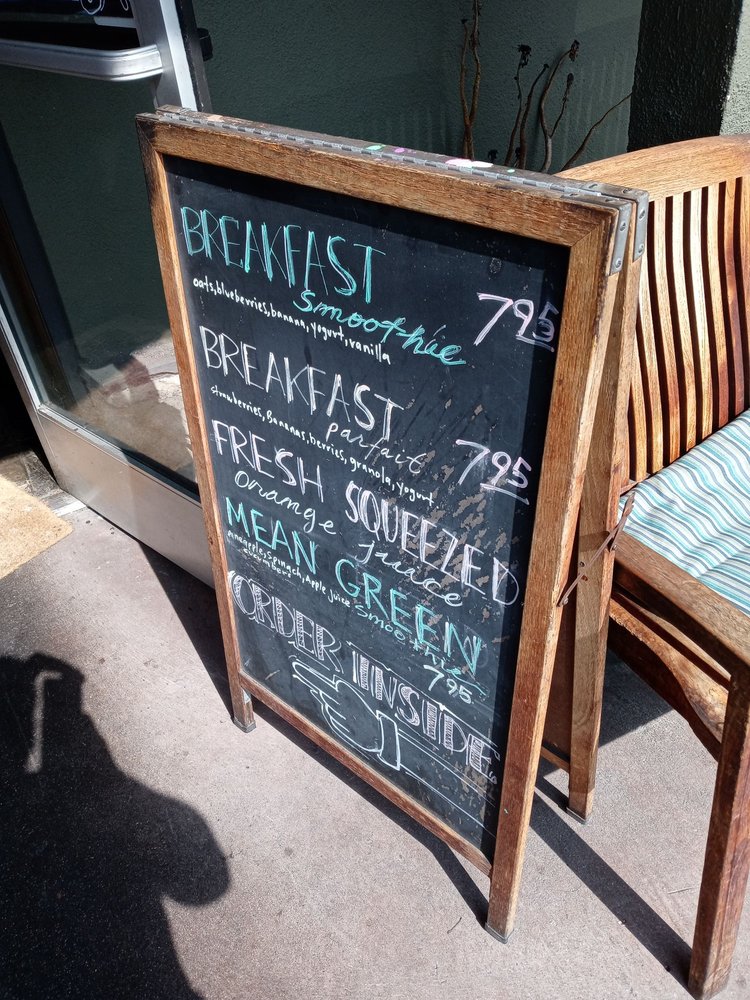 BREAKFAST
smoothie 795
oats, blueberries, banana, yogurt, vanilla
BREAKFAST
parfait 795
strawberries, Bananas, berries, granola, yogurt
FRESH SQUEEZED
orange juice
MEAN GREEN
smoothie
pineapple, spinach, apple juice
cucumber
795
ORDER INSIDE